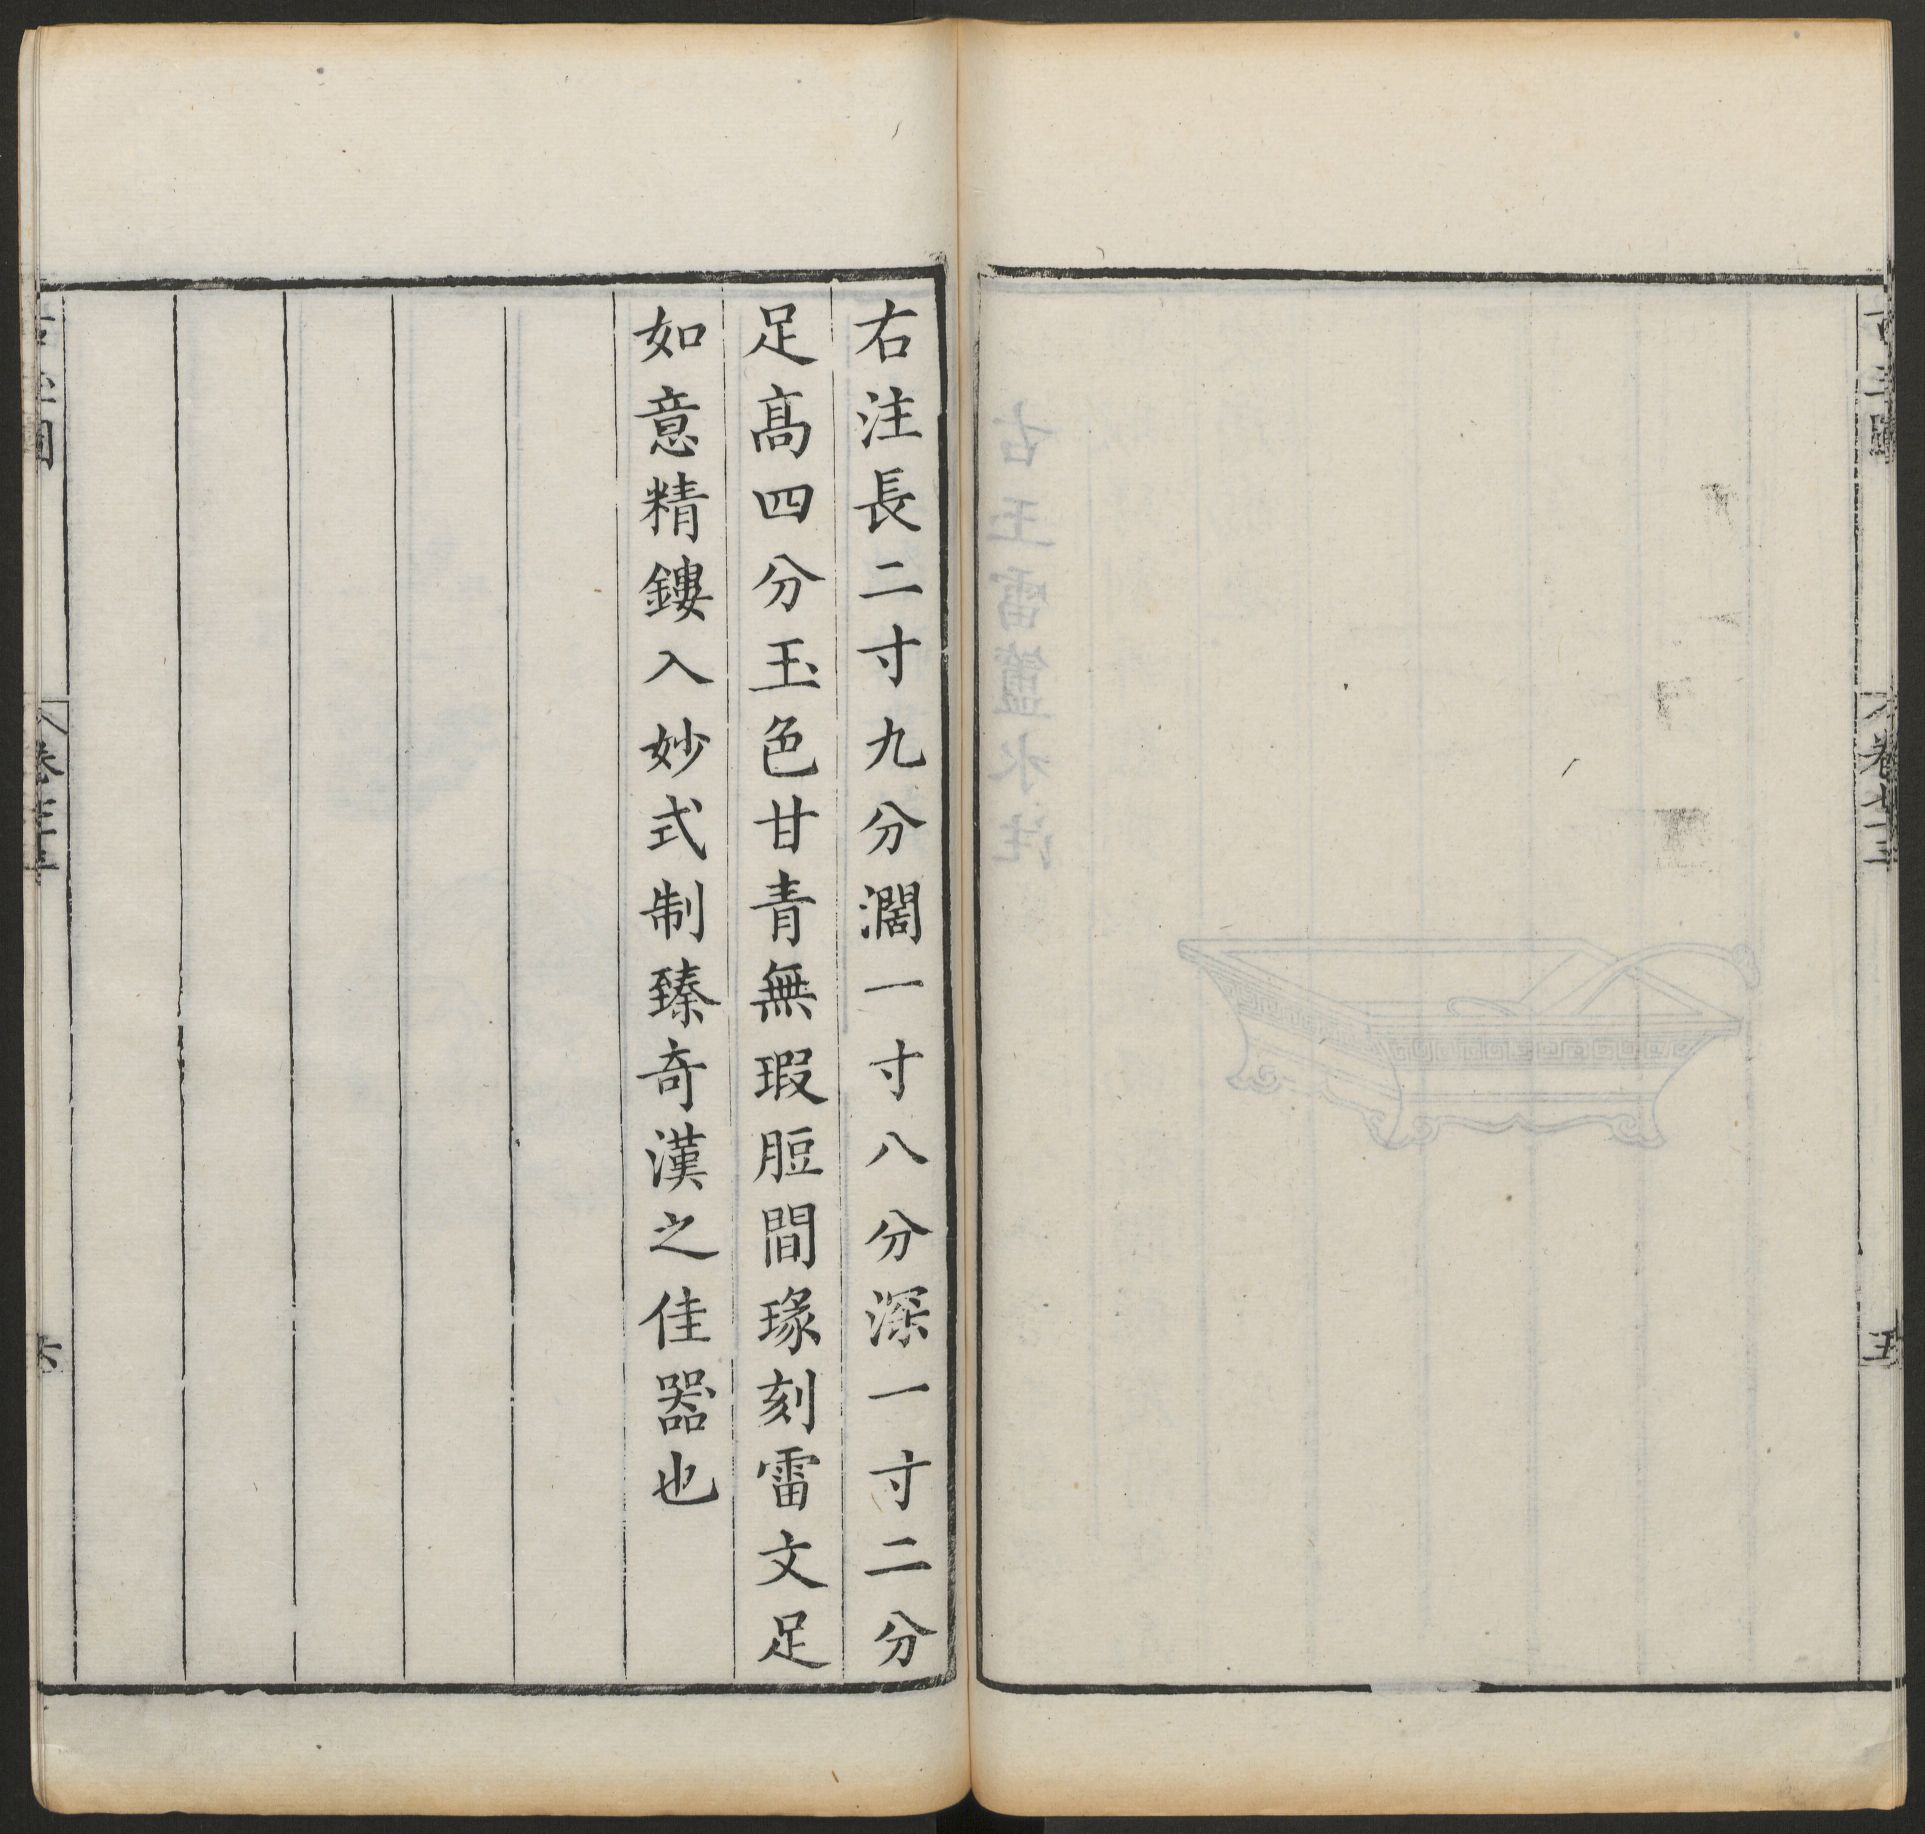 右注長二寸九分濶一寸八分深一寸二分
足高四分玉色甘青無瑕脰間瑑刻雷文足
如意精鏤入妙式制臻奇漢之佳器也
古玉圖
卷廿三
五
六